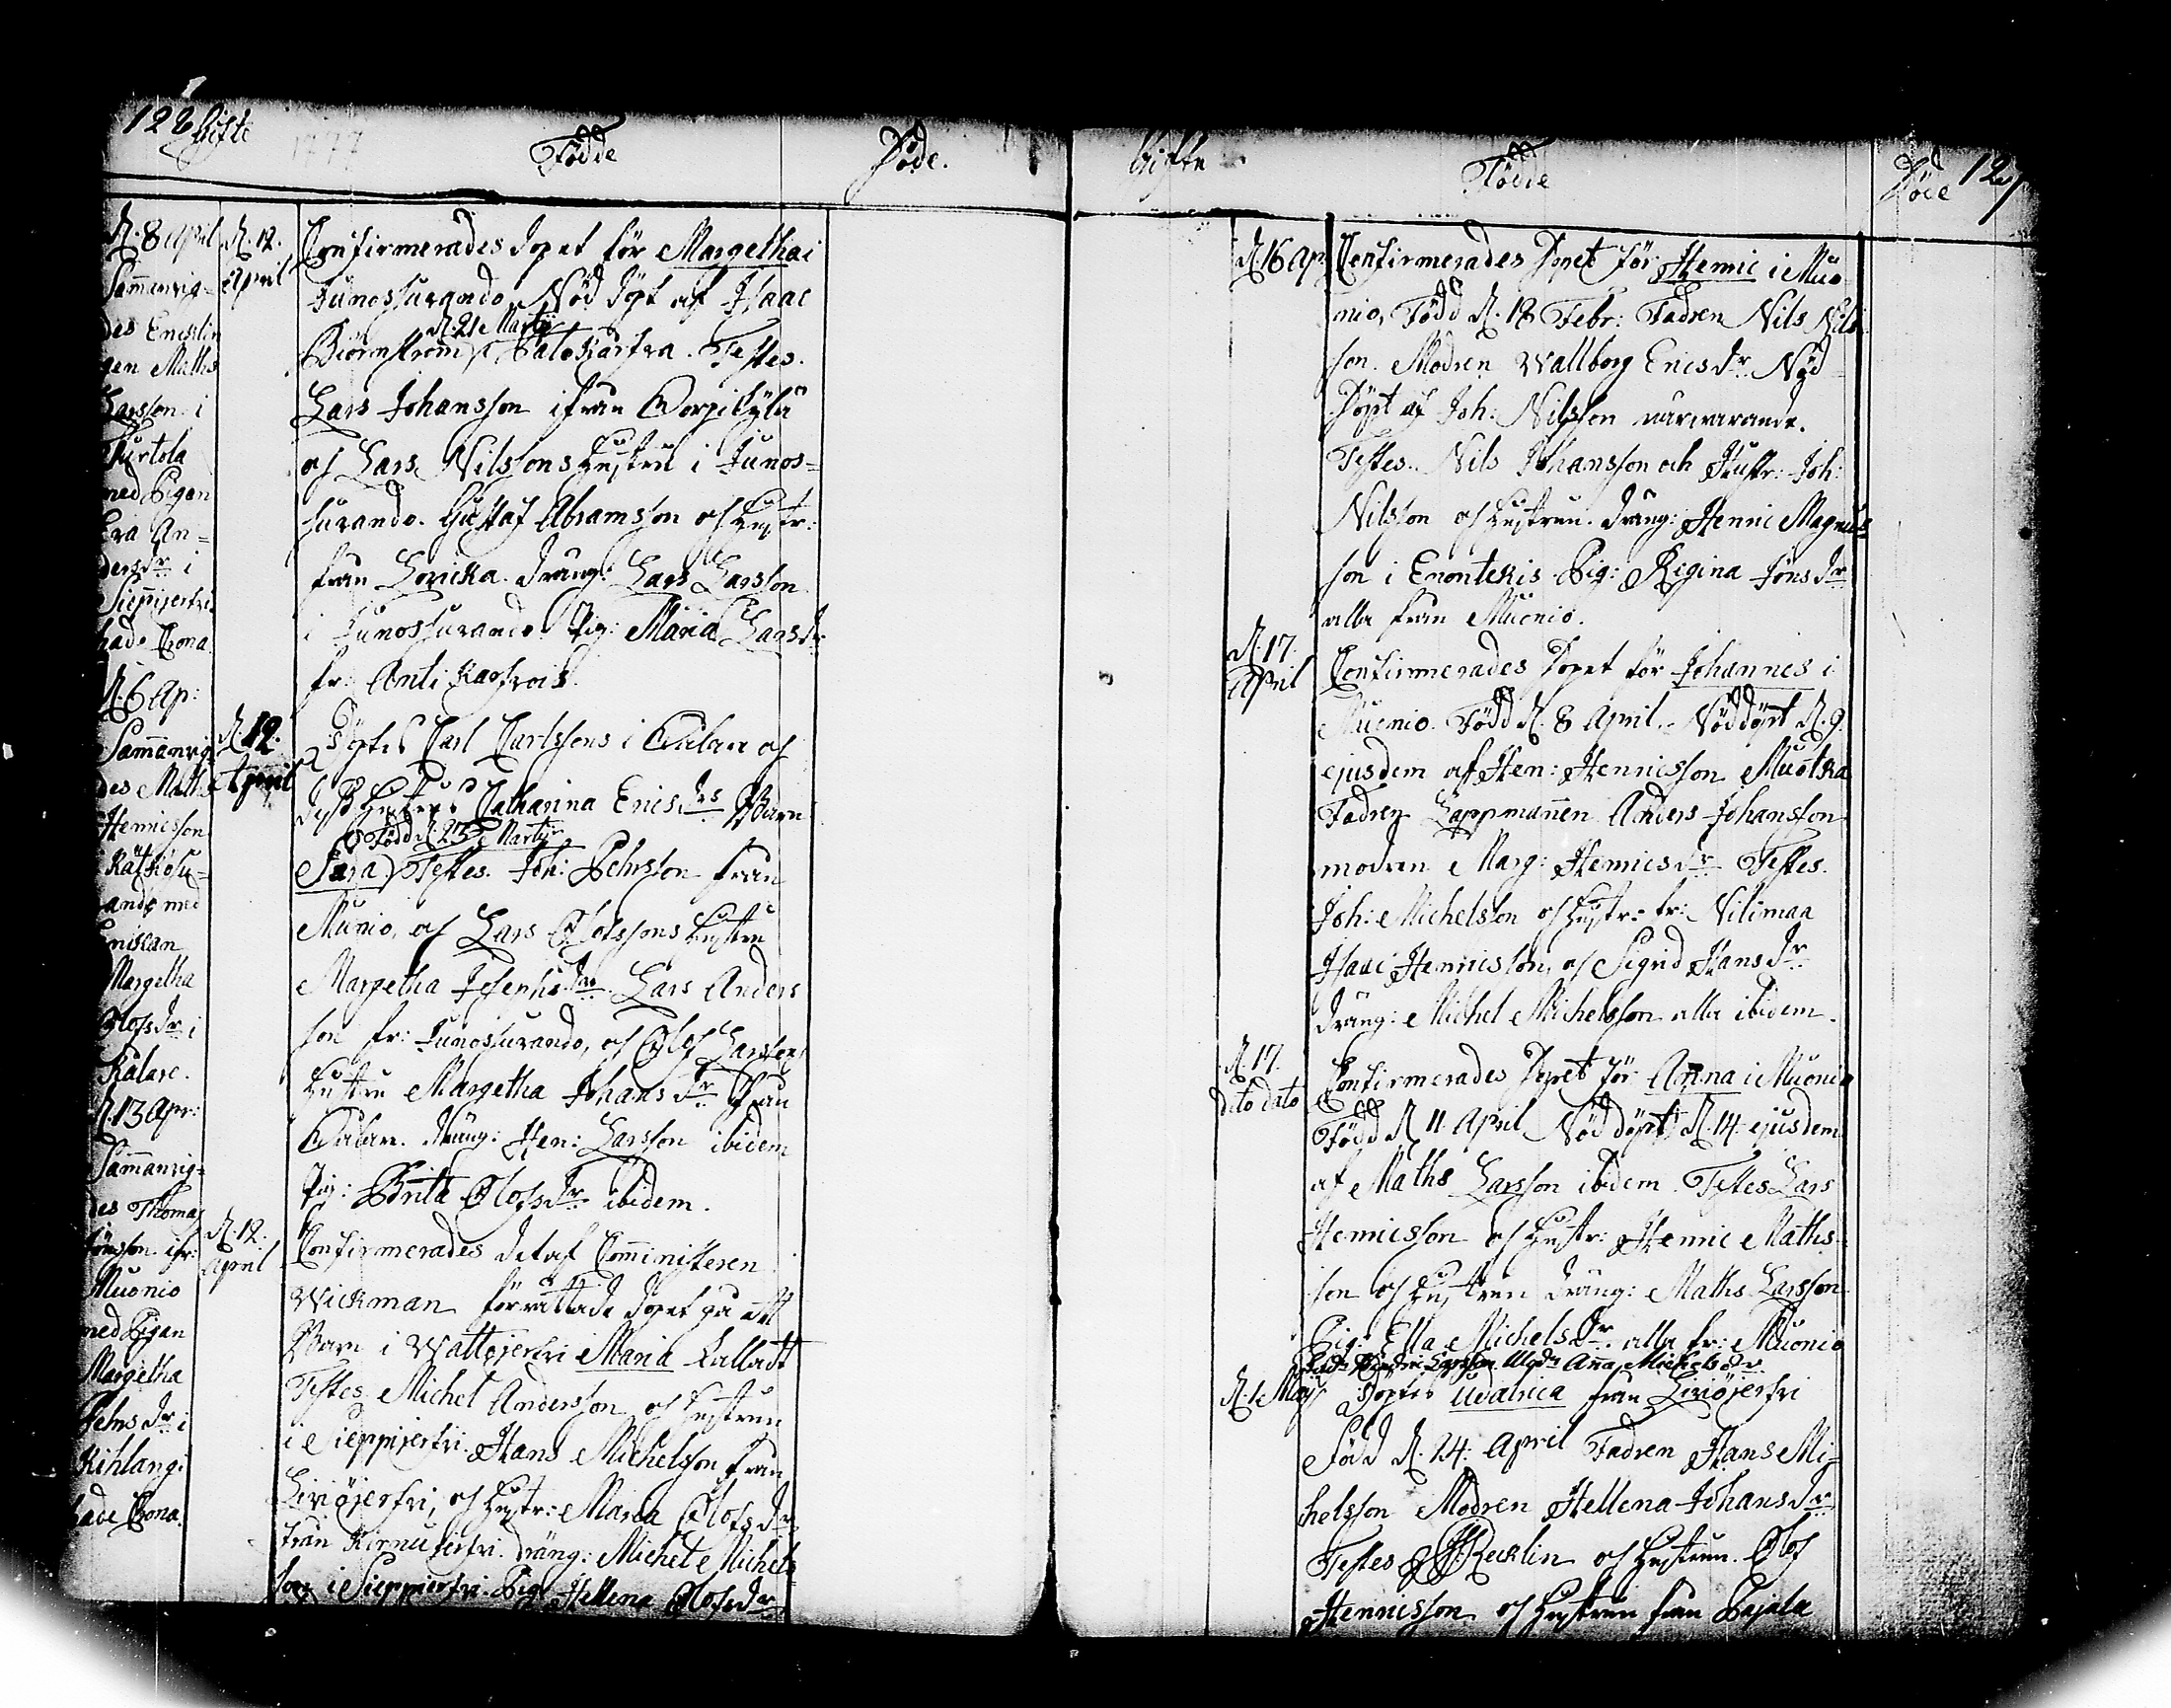 126 Gifte
1777
Födde
Döde.
D. 8 April
Sam̄anvig-
des Encklin
gen Maths
Larsson i
Turtola
med Pigan
Eva An-
dersdr i
Sieppijerfvi
hade Crona.
D. 6 Ap:
Sam̄anvig
des Maths
Henricsson
Kätkösu-
ando med
Margetha
Olofsdr i
Kälare.
D. 13 Apr:
Sam̄anvig-
des Thomas
Jönsson ifr:
Muonio
med Pigan
Margetha
Pehrsdr i
Kihlangi
hade Crona.
D. 12.
April
Confirmerades dopet för Margetha i
Junossurando, Nöd döpt af Isaac
D. 21 Martij
Biörnström i Palokårfva. Testes.
Lars Johansson ifrån Corpikylä
och Lars Nilssons Hustru i Junos-
surando. Gustaf Abramsson och Hustr:
från Lovicka. Dräng: Lars Larsson
i Junossurando. Pig: Maria Larsdr
fr: Anti
D. 12.
April
Döptes Carl Carlssons i Calare och
dess Hustrus Catharina Ericsdrs Barn
Född d. 23 Martij
Sara) Testes. Joh: Pehrsson från
Muonio, och Lars Olofssons Hustru
Margetha Josephsdr. Lars Anders
son fr: Junossurando, och Olof Larssons
Hustru Margetha Johansdr från
Calare. Dräng: Hen: Larsson ibidem
Pig: Brita Olofsdr ibidem.
D. 12.
April
Confirmerades det af Com̄inisteren
Wickman förrättade dopet på ett
Barn i Wattojerfvi Maria kalladt
Testes Michel Andersson och Hustrun
i Sieppijerfvi. Hans Michelsson från
Liviöjerfvi, och Hustr: Maria Olofsdr
från Kirnujerfvi. Dräng: Michel Michels-
son i Sieppijerfvi. Pig: Hellena Olofsdr
Gifte
Födde
Döde
127
D. 16 Ap
Confirmerades Dopet för Henric i Muo
nio, Född D. 18 Febr: Fadren Nils Nils
son. Modren Wallborg Ericsdr. Nöd-
Döpt af Joh: Nilsson närwarande.
Testes. Nils Johansson och Hustr: Joh:
Nilsson och Hustrun. Dräng: Henric Magnus
son i Enontekis Pig: Regina Jönsdr
alla från Muonio.
D. 17.
April
Confirmerades Dopet för Johannes i
Muonio. Född D. 8 April. Nöddöpt D. 9
ejusdem af Hen: Henricsson Muotka
Fadren Lappman̄en Anders Johansson
modren Marg: Henricsdr Testes.
Joh: Michelsson och Hustr: fr: Vilimaa
Isaac Henricsson, och Sigrid Hansdr
Dräng: Michel Michelsson alla ibidem.
D. 17.
dito dato
Confirmerades Dopet för Anna i Muonio
Född D 11. April, Nöddöpt D. 14 ejusdem
af Maths Larsson ibidem. Testes Lars
Henricsson och Hustr: Henric Maths-
son och Hustrun Dräng: Maths Larsson
Pig: Ella Michelsdr alla fr: Muonio
Larsson Modr Anna Michelsdr
D. 1 Maij
Döptes Uudalrica från Liviöjerfvi
Född D. 24: April Fadren Hans Mi-
chelsson Modren Hellena Johansdr
Testes Kecklin och Hustrun. Olof
Henricsson och Hustrun från Pajala